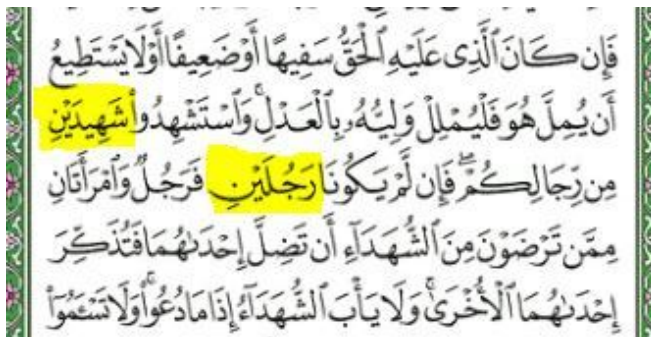 فَإِن كَانَ ٱلَّذِى عَلَيْهِ ٱلْحَقُّ سَفِيهًا أَوْ ضَعِيفًا أَوْ لَا يَسْتَطِيعُ
أَن يُمِلَّ هُوَ فَلْيُمْلِلْ وَلِيُّهُۥ بِٱلْعَدْلِۚ وَٱسْتَشْهِدُوا۟ شَهِيدَيْنِ
مِن رِّجَالِكُمْۖ فَإِن لَّمْ يَكُونَا رَجُلَيْنِ فَرَجُلٌ وَٱمْرَأَتَانِ
مِمَّن تَرْضَوْنَ مِنَ ٱلشُّهَدَآءِ أَن تَضِلَّ إِحْدَىٰهُمَا فَتُذَكِّرَ
إِحْدَىٰهُمَا ٱلْأُخْرَىٰۚ وَلَا يَأْبَ ٱلشُّهَدَآءُ إِذَا مَا دُعُوا۟ۚ وَلَا تَسْـَٔمُوٓا۟